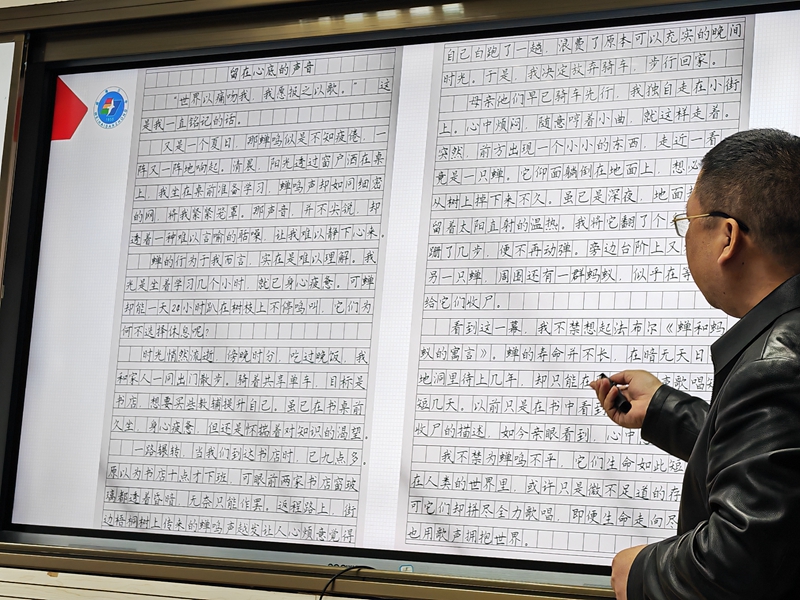 留在心底的声音
“世界以痛吻我，我愿报之以歌。”这
是我一直铭记的话。
又是一个夏日，那蝉鸣似是不知疲倦，一
阵又一阵地响起。清晨，阳光透过窗户洒在桌
上，我坐在桌前准备学习，蝉鸣声却如同细密
的网，将我紧紧笼罩。那声音，并不尖锐，却
透着一种难以言喻的聒噪，让我难以静下心来。
蝉的行为于我而言，实在是难以理解。我
光是坐着学习几个小时，就已身心疲惫。可蝉
却能一天24小时趴在树枝上不停鸣叫，它们为
何不选择休息呢？
时光悄然流逝，傍晚时分，吃过晚饭，我
和家人一同出门散步。骑着共享单车，目标是
书店，想要买些教辅提升自己。虽已在书桌前
久坐，身心疲惫，但还是怀揣着对知识的渴望。
一路辗转，当我们到达书店时，已九点多，
原以为书店十点才下班，可眼前两家书店窗玻
璃都透着昏暗，无奈只能作罢。返程路上，街
边梧桐树上传来的蝉鸣声越发让人心烦意觉得
自己白跑了一趟，浪费了原本可以充实的晚间
时光。于是，我决定放弃骑车，步行回家。
母亲他们早已骑车先行，我独自走在小街
上。心中烦闷，随意哼着小曲，就这样走着。
突然，前方出现一个小小的东西，走近一看
竟是一只蝉。它仰面躺倒在地面上，想必
从树上掉下来不久。虽已是深夜，地面
留着太阳直射的温热。我将它翻了个
蹒了几步，便不再动弹。旁边台阶上又
另一只蝉，周围还有一群蚂蚁，似乎在等
给它们收尸。
看到这一幕，我不禁想起法布尔《蝉和蚂
蚁的寓言》。蝉的寿命并不长，在暗无天日
地洞里待上几年，却只能在 声歌唱短
短几天。以前只是在书中看到
收尸的描述，如今亲眼看到，心中
我不禁为蝉鸣不平，它们生命如此短
在人类的世界里，或许只是微不足道的存
可它们却拼尽全力歌唱，即便生命走向尽
也用歌声拥抱世界。